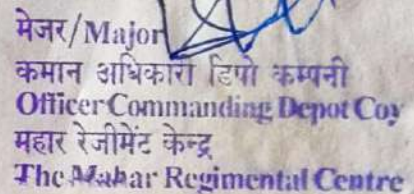 मेजर/Major
कमान अधिकारी डिपो कम्पनी
Officer Commanding Depot Coy
महार रेजीमेंट केन्द्र
The Mahar Regimental Centre